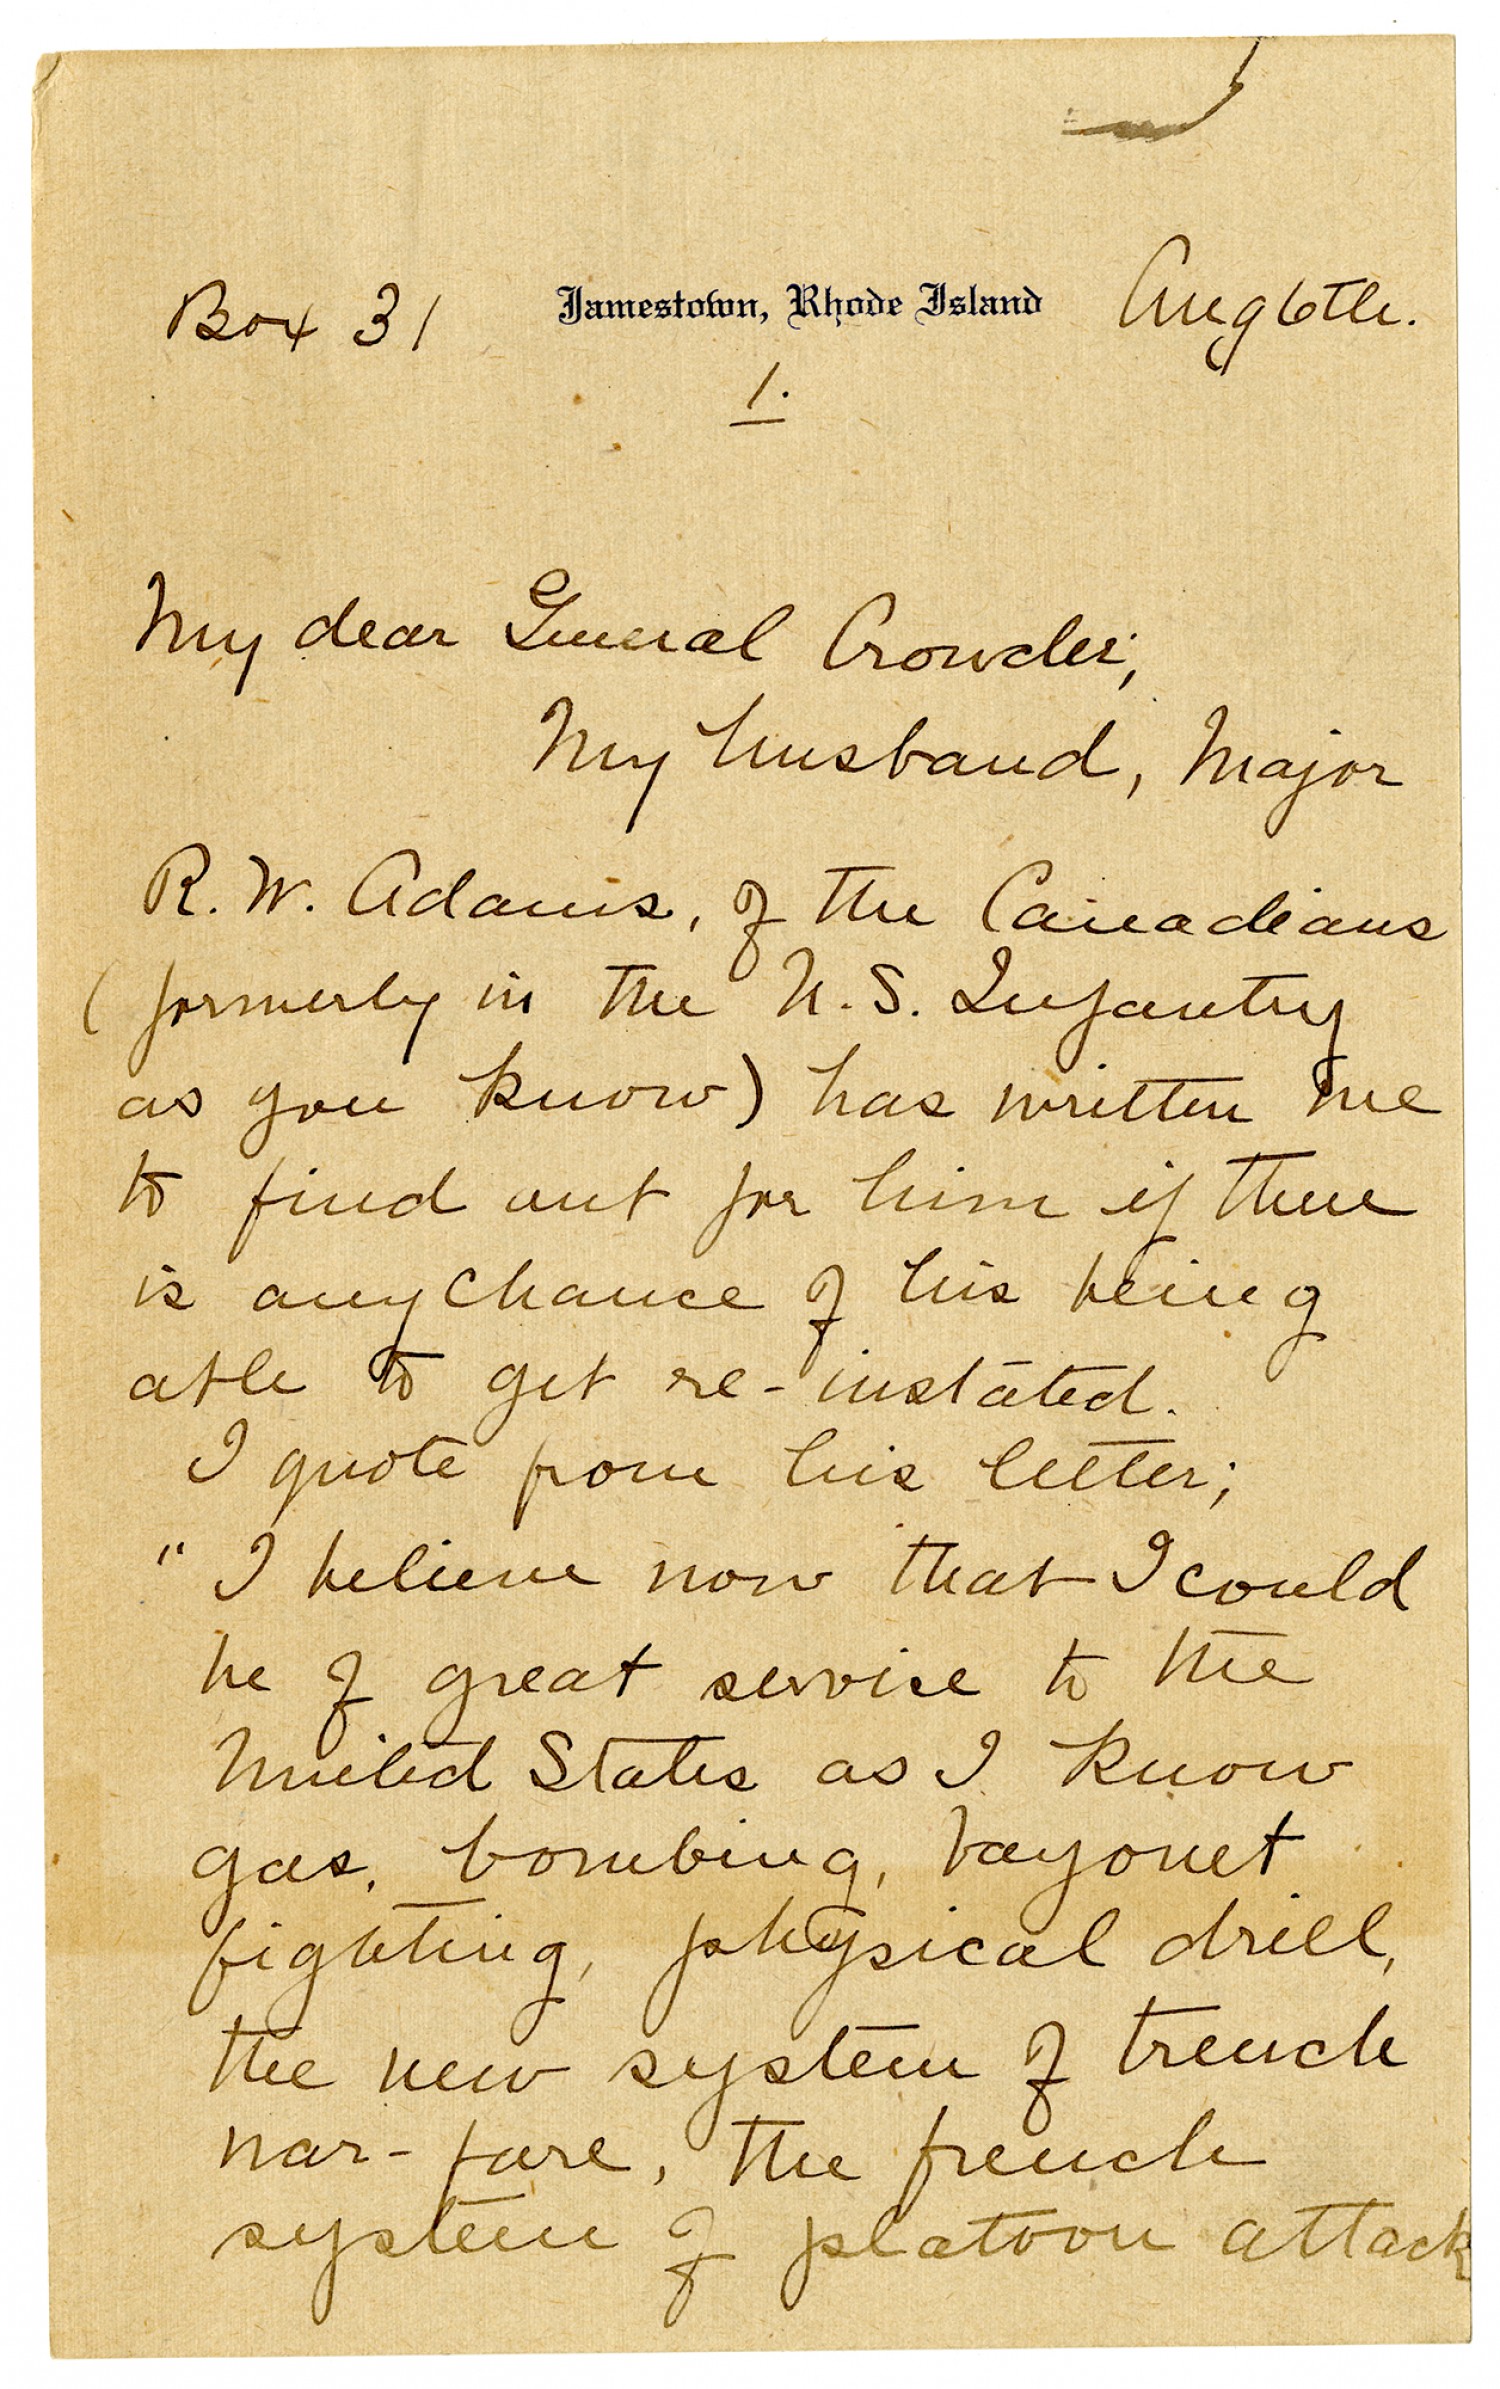 Box 31 Jamestown, Rhode Island Aug 6th.
1.
My dear General Crowder;
My husband, Major
R. W. Adams, of the Canadians
(formerly in the U.S. Infantry
as you know) has written me
to find out for him if there
is any chance of his being
able to get re-instated.
I quote from his letter;
"I believe now that I could
be of great service to the
United States as I know
gas, bombing, bayonet
fighting, physical drill,
the new system of trench
war-fare, the french
system of platoon attack